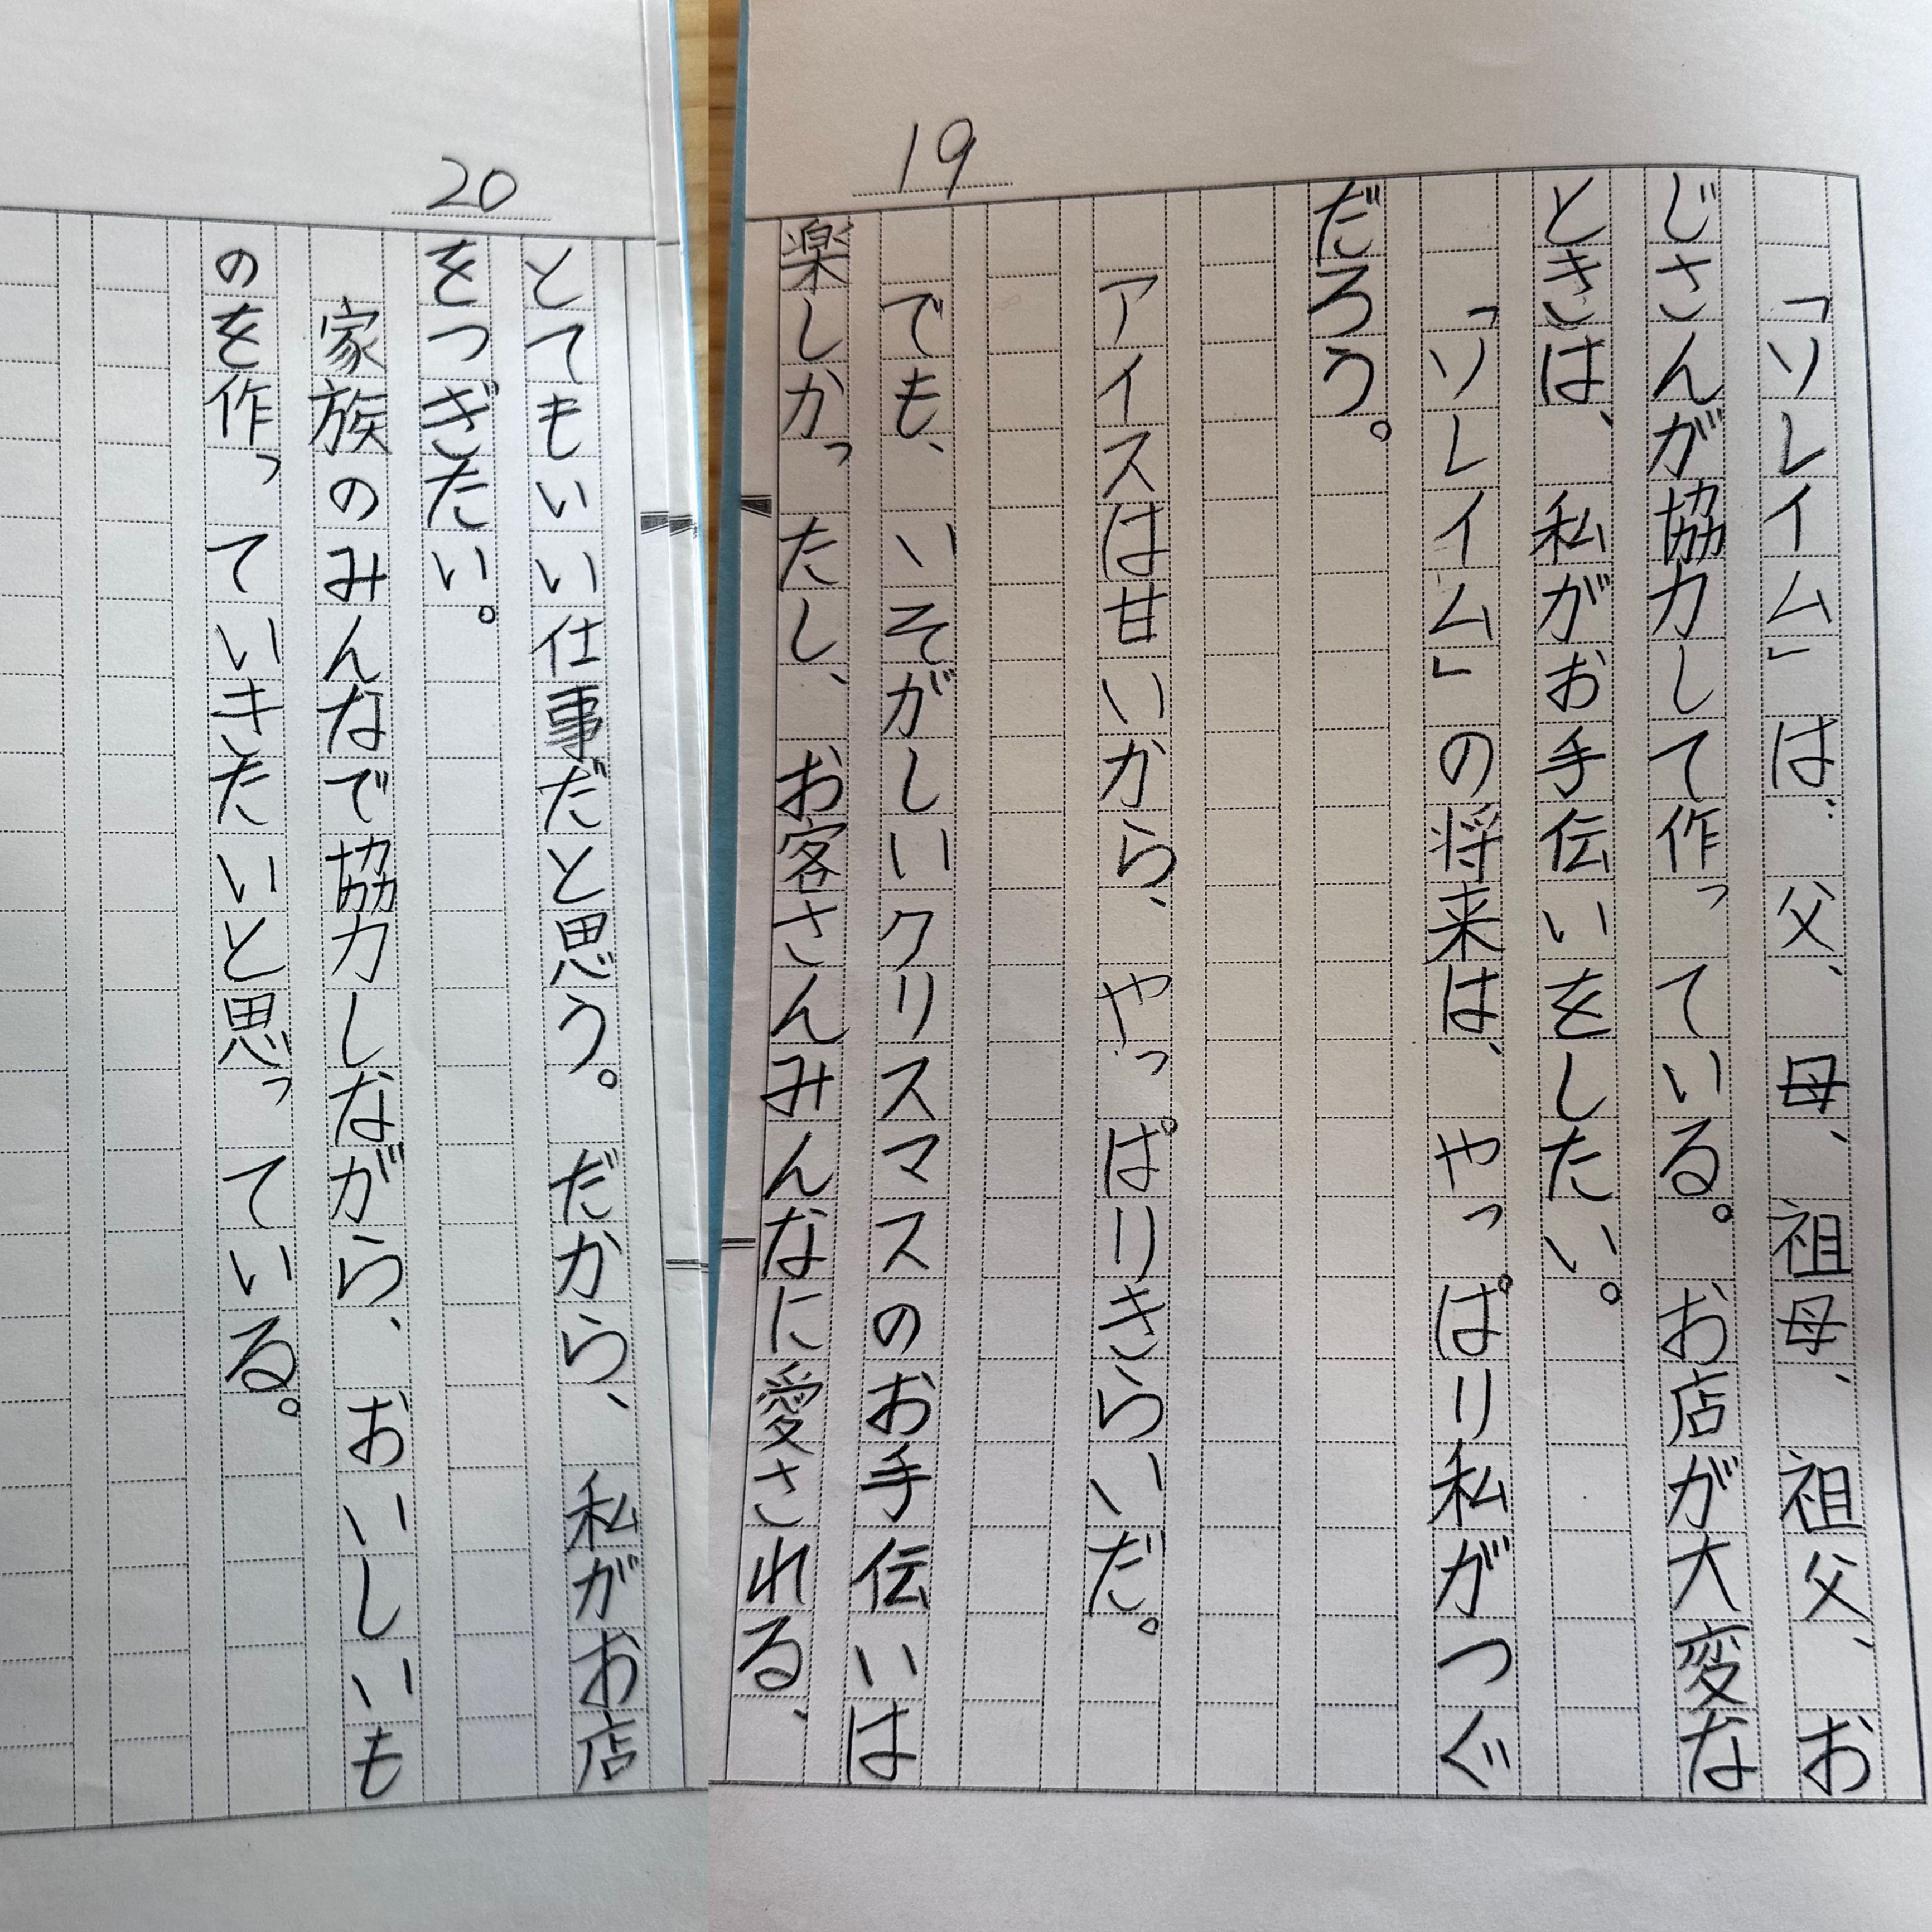 19
「ソレイム」は、父、母、祖母、祖父、お
じさんが協力して作っている。お店が大変な
ときは、私がお手伝いをしたい。
「ソレイム」の将来は、やっぱり私がつぐ
だろう。
アイスは甘いから、やっぱりきらいだ。
でも、いそがしいクリスマスのお手伝いは
楽しかったし、お客さんみんなに愛される、
20
とてもいい仕事だと思う。だから、私がお店
をつぎたい。
家族のみんなで協力しながら、おいしいも
のを作っていきたいと思っている。